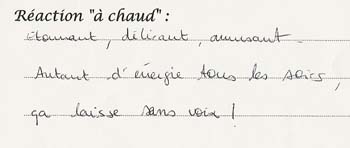 Réaction "à chaud" :
Etonnant, délirant, amusant.
Autant d'énergie tous les soirs,
ça laisse sans voix !